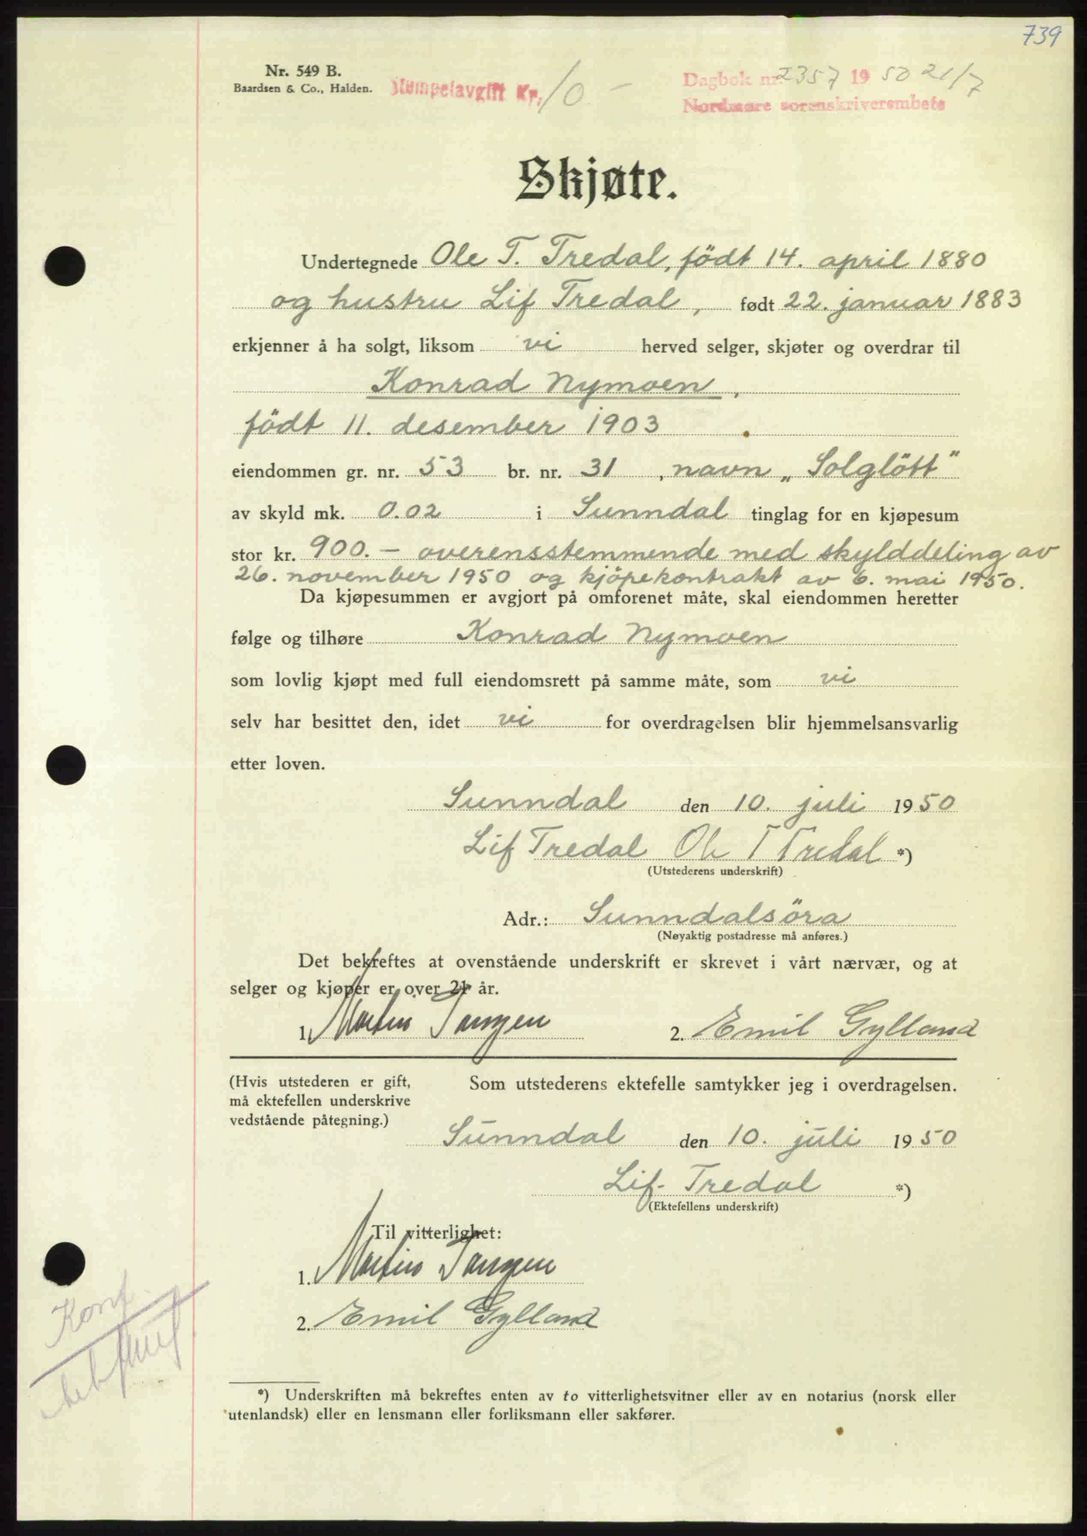 739
Nr. 549 B.
Baardsen & Co., Halden.
Stempelavgift Kr. 10 –
Dagbok nr. 2357 1950 21/7
Nordmøre sorenskriverembete
Skjøte.
Undertegnede Ole T. Tredal, födt 14. april 1880
og hustru Lif Tredal, født 22. januar 1883
erkjenner å ha solgt, liksom vi herved selger, skjøter og overdrar til
Konrad Nymoen,
födt 11. desember 1903
eiendommen gr. nr. 53 br. nr. 31, navn „Solglött"
av skyld mk. 0.02 i Sunndal tinglag for en kjøpesum
stor kr. 900.– overensstemmende med skylddeling av
26. november 1950 og kjöpekontrakt av 6. mai 1950.
Da kjøpesummen er avgjort på omforenet måte, skal eiendommen heretter
følge og tilhøre Konrad Nymoen
som lovlig kjøpt med full eiendomsrett på samme måte, som vi
selv har besittet den, idet vi for overdragelsen blir hjemmelsansvarlig
etter loven.
Sunndal den 10. juli 1950
Lif Tredal Ole T Tredal *)
(Utstederens underskrift)
Adr.: Sunndalsöra
(Nøyaktig postadresse må anføres.)
Det bekreftes at ovenstående underskrift er skrevet i vårt nærvær, og at
selger og kjøper er over 21 år.
1. Martin Tangen 2. Emil Gylland
(Hvis utstederen er gift, Som utstederens ektefelle samtykker jeg i overdragelsen.
må ektefellen underskrive
vedstående påtegning.)
Sunndal den 10. juli 1950
Lif Tredal *)
(Ektefellens underskrift)
Til vitterlighet:
1. Martin Tangen
2. Emil Gylland
Konf.
*) Underskriften må bekreftes enten av to vitterlighetsvitner eller av en notarius (norsk eller
utenlandsk) eller en lensmann eller forliksmann eller sakfører.